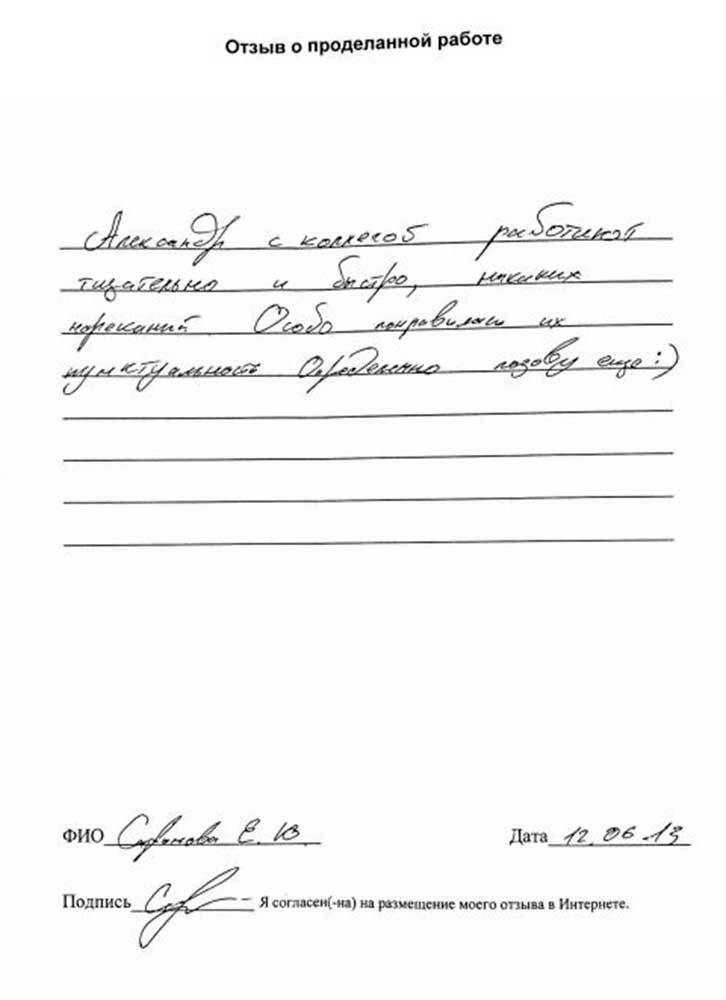 Отзыв о проделанной работе
Александр с коллегой работают
тщательно и быстро, никаких
нареканий. Особо понравилась их
пунктуальность Определенно позову еще :)
ФИО Е. Ю. Дата 12.06.13
Подпись Я согласен(-на) на размещение моего отзыва в Интернете.